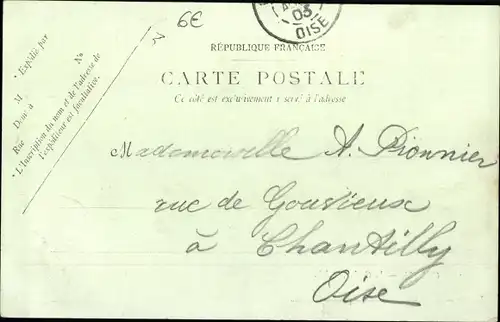 6€
03
OISE
RÉPUBLIQUE FRANÇAISE
CARTE POSTALE
Ce côté est exclusivement réservé à l'adresse
Expédié par
M
Nº
Demt à
Rue
L'Inscription du nom et de l'adresse de
l'expéditeur est facultative.
Mademoiselle A. Pionnier
rue de Gouvieux
à Chantilly
Oise